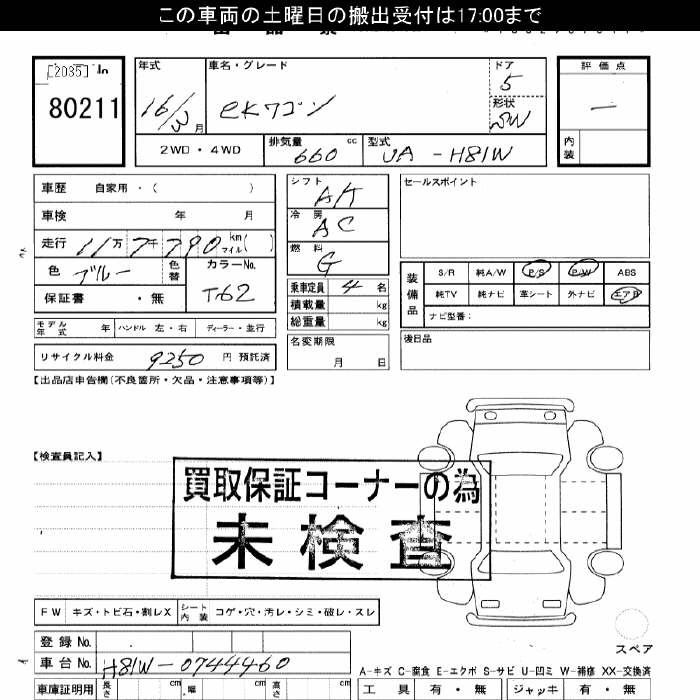 この車両の土曜日の搬出受付は17:00まで
[2035] No
80211
年式 車名・グレード ドア 評価点
16/3月 eKワゴン 5 —
形状 SW
2WD・4WD 排気量 660 cc 型式 UA-H81W 内装
車歴 自家用・( )
車検 年 月
走行 11万7千790 km マイル( )
色 ブルー 色替 カラーNo. T62
保証書 ・無
モデル年式 年 ハンドル 左・右 ディーラー・並行
リサイクル料金 9250 円 預託済
シフト AT
冷房 AC
燃料 G
乗車定員 4 名
積載量 kg
総重量 kg
名変期限
月 日
セールスポイント
装備品
S/R 純A/W P/S P/W ABS
純TV 純ナビ 革シート 外ナビ エアB
ナビ型番:
後日品
【出品店申告欄(不良箇所・欠品・注意事項等)】
【検査員記入】
買取保証コーナーの為
未検査
FW キズ・トビ石・割レX シート内装 コゲ・穴・汚レ・シミ・破レ・スレ
登録No.
車台No. H81W-0744460
スペア
A-キズ C-腐食 E-エクボ S-サビ U-凹ミ W-補修 XX-交換済
車庫証明用 長さ cm 幅 cm 高さ cm 工具 有・無 ジャッキ 有・無